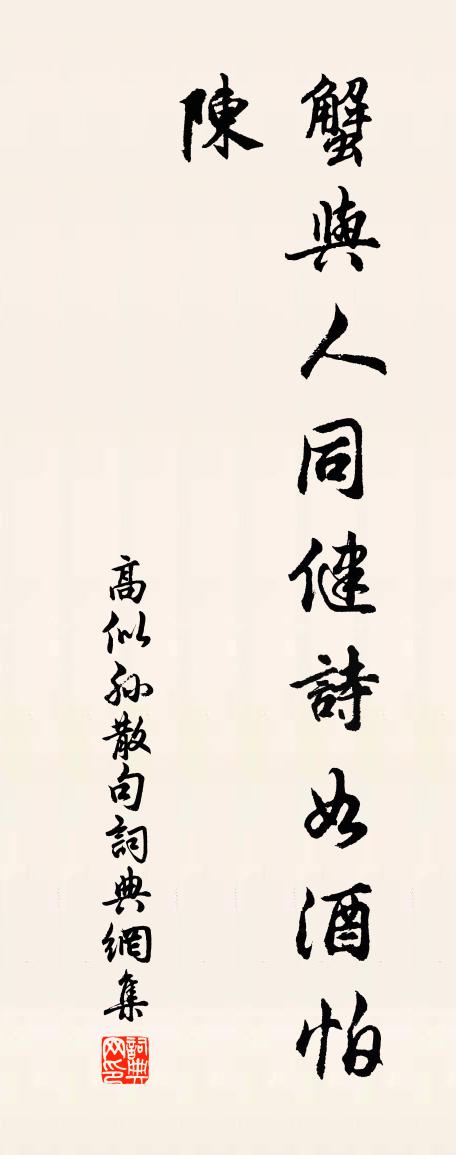 蟹與人同健詩如酒怕
陳
高似孫散句詞典網集
詞典
网印